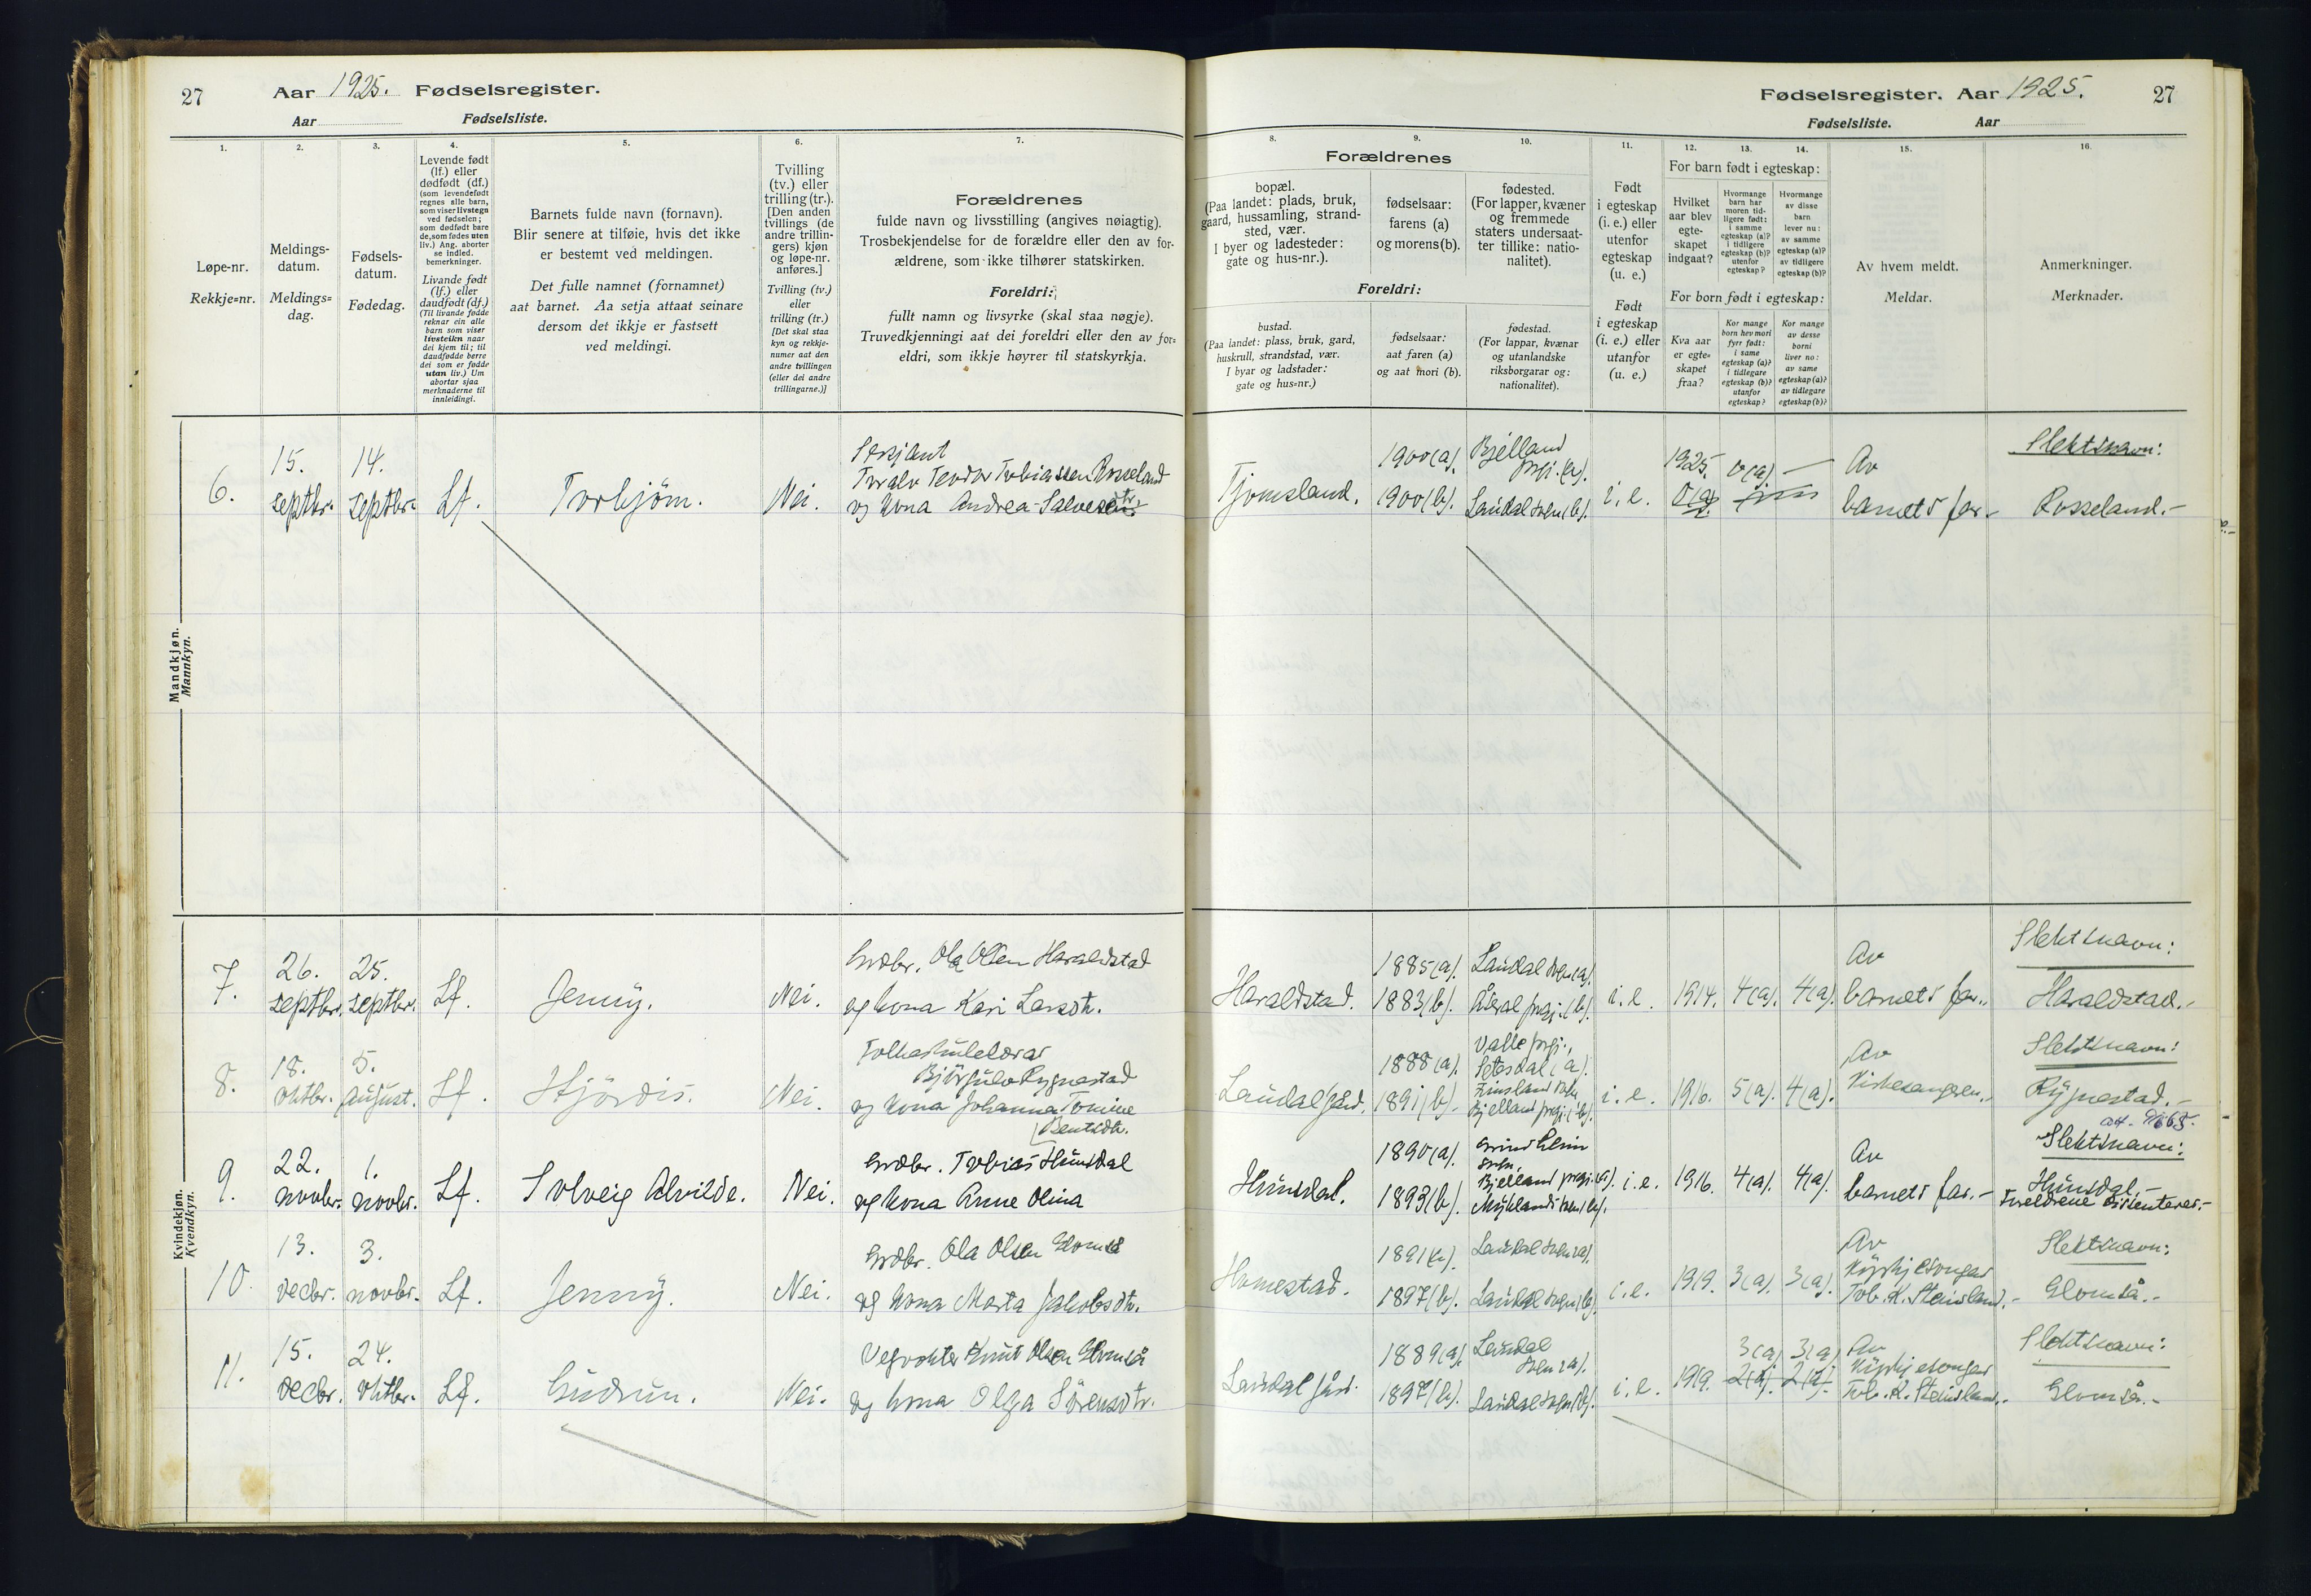 27
Aar 1925. Fødselsregister.
Aar
Fødselsliste.
1.
Løpe-nr.
Rekkje=nr.
2.
Meldings-
datum.
Meldings=
dag.
3.
Fødsels-
datum.
Fødedag.
4.
Levende født
(lf.) eller
dødfødt (df.)
(som levendefødt
regnes alle barn,
som viser livstegn
ved fødselen;
som dødfødt bare
de, som fødes uten
liv.) Ang. aborter
se indled.
bemerkninger.
Livande født
(lf.) eller
daudfødt (df.)
(Til livande fødde
reknar ein alle
barn som viser
livsteikn naar
dei kjem til; til
daudfødde berre
dei som er fødde
utan liv.) Um
abortar sjaa
merknaderne til
innleidingi.
5.
Barnets fulde navn (fornavn).
Blir senere at tilføie, hvis det ikke
er bestemt ved meldingen.
Det fulle namnet (fornamnet)
aat barnet. Aa setja attaat seinare
dersom det ikkje er fastsett
ved meldingi.
6.
Tvilling
(tv.) eller
trilling (tr.).
[Den anden
tvillings (de
andre trillin-
gers) kjøn
og løpe-nr.
anføres.]
Tvilling (tv.)
eller
trilling (tr.)
[Det skal staa
kyn og rekkje-
numer aat den
andre tvillingen
(eller dei andre
trillingarne.)]
7.
Forældrenes
fulde navn og livsstilling (angives nøiagtig).
Trosbekjendelse for de forældre eller den av for-
ældrene, som ikke tilhører statskirken.
Foreldri:
fullt namn og livsyrke (skal staa nøgje).
Truvedkjenningi aat dei foreldri eller den av for=
eldri, som ikkje høyrer til statskyrkja.
Mandkjøn.
Mannkyn.
6.
15.
septbr.
14.
septbr.
Lf.
Torbjörn.
Nei.
Serjeant
Toralv Teodor Tobiassen Rosseland
og kona Andrea Salvesdtr.
Kvindekjøn.
Kvendkyn.
7.
26.
septbr.
25.
septbr.
Lf.
Jenny.
Nei.
Grdbr. Ola Olsen Haraldstad
og kona Kari Larsdtr.
8.
18.
oktbr.
5.
August.
Lf.
Hjördis.
Nei.
Folkeskulelærar
Björgulv Rygnestad
og kona Johanna Tomine
Bentsdtr.
9.
22.
novbr.
1.
novbr.
Lf.
Solveig Alvilde.
Nei.
Grdbr. Tobias Hunsdal
og kona Anne Olina
10.
13.
decbr.
3.
novbr.
Lf.
Jenny.
Nei.
Grdbr. Ola Olsen Glomså
og kona Marta Jakobsdtr.
11.
15.
decbr.
24.
oktbr.
Lf.
Gudrun.
Nei.
Vegvokter Knut Olsen Glomså
og kona Olga Sörensdtr.
Fødselsregister. Aar 1925.
27
Fødselsliste.
Aar
8.
Forældrenes
bopæl.
(Paa landet: plads, bruk,
gaard, hussamling, strand-
sted, vær.
I byer og ladesteder:
gate og hus-nr.).
Foreldri:
bustad.
(Paa landet: plass, bruk, gard,
huskrull, strandstad, vær.
I byar og ladstader:
gate og hus=nr.)
9.
fødselsaar:
farens (a)
og morens (b).
fødselsaar:
aat faren (a)
og aat mori (b).
10.
fødested.
(For lapper, kvæner
og fremmede
staters undersaat-
ter tillike: natio-
nalitet).
fødestad.
(For lappar, kvænar
og utanlandske
riksborgarar og:
nationalitet).
11.
Født
i egteskap
(i. e.) eller
utenfor
egteskap
(u. e.)
Født
i egteskap
(i. e.) eller
utanfor
(u. e.)
12.
For barn født i egteskap:
Hvilket
aar blev
egte-
skapet
indgaat?
For born født i egteskap:
Kva aar
er egte=
skapet
fraa?
13.
Hvormange
barn har
moren tid-
ligere født:
i samme
egteskap (a)?
i tidligere
egteskap (b)?
utenfor
egteskap?
Kor mange
born hev mori
fyrr født:
i same
egteskap (a)?
i tidlegare
egteskap (b)?
utanfor
egteskap?
14.
Hvormange
av disse
barn
lever nu:
av samme
egteskap (a)?
av tidligere
egteskap (b)?
Kor mange
av desse
borni
liver no:
av same
egteskap (a)?
av tidlegare
egteskap (b)?
15.
Av hvem meldt.
Meldar.
16.
Anmerkninger.
Merknader.
Tjomsland.
1900(a).
1900(b).
Bjelland
prgj. (a).
Laudal sokn (b).
i. e.
1925.
0(a).
—
Av
barnets far.-
Slektsnavn:
Rosseland.-
Haraldstad.
1885(a).
1883(b).
Laudal sokn (a).
Åseral prgj. (b).
i. e.
1914.
4(a).
4(a).
Av
barnets far.-
Slektsnavn:
Haraldstad.-
Laudal
1888(a).
1891(b).
Valle prgj.,
Setesdal (a).
Finsland sokn
Bjelland prgj. (b).
i. e.
1916.
5(a).
4(a).
Av
Slektsnavn:
Rygnestad.-
Hunsdal.
1890(a).
1893(b).
Grindheim
sokn,
Bjelland prgj. (a).
Myklands sokn (b).
i. e.
1916.
4(a).
4(a).
Av
barnets far.-
Slektsnavn:
Hunsdal.-
Foreldrene dissenterar.-
Homestad.
1891(a).
1897(b).
Laudal sokn (a).
Laudal sokn (b).
i. e.
1919.
3(a).
3(a).
Av
Kyrkjesongar
Tob. K. Steinsland.-
Slektsnavn:
Glomså.-
Laudal
1889(a).
1897(b).
Laudal
sokn (a).
Laudal sokn (b).
i. e.
1919.
3(a)
2(a).
3(a)
2(a).
Av
Kyrkjesongar
Tob. K. Steinsland.-
Slektsnavn:
Glomså.-